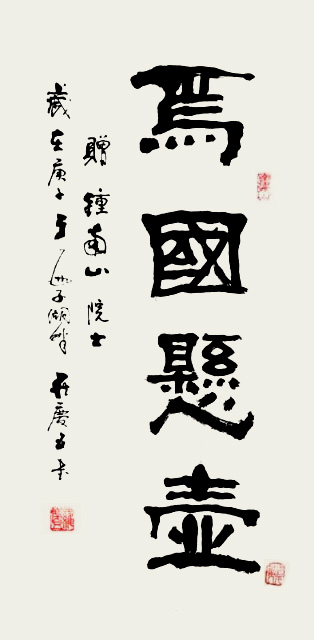 爲國懸壺
贈鍾南山院士
歲在庚子于 子湖畔 慶